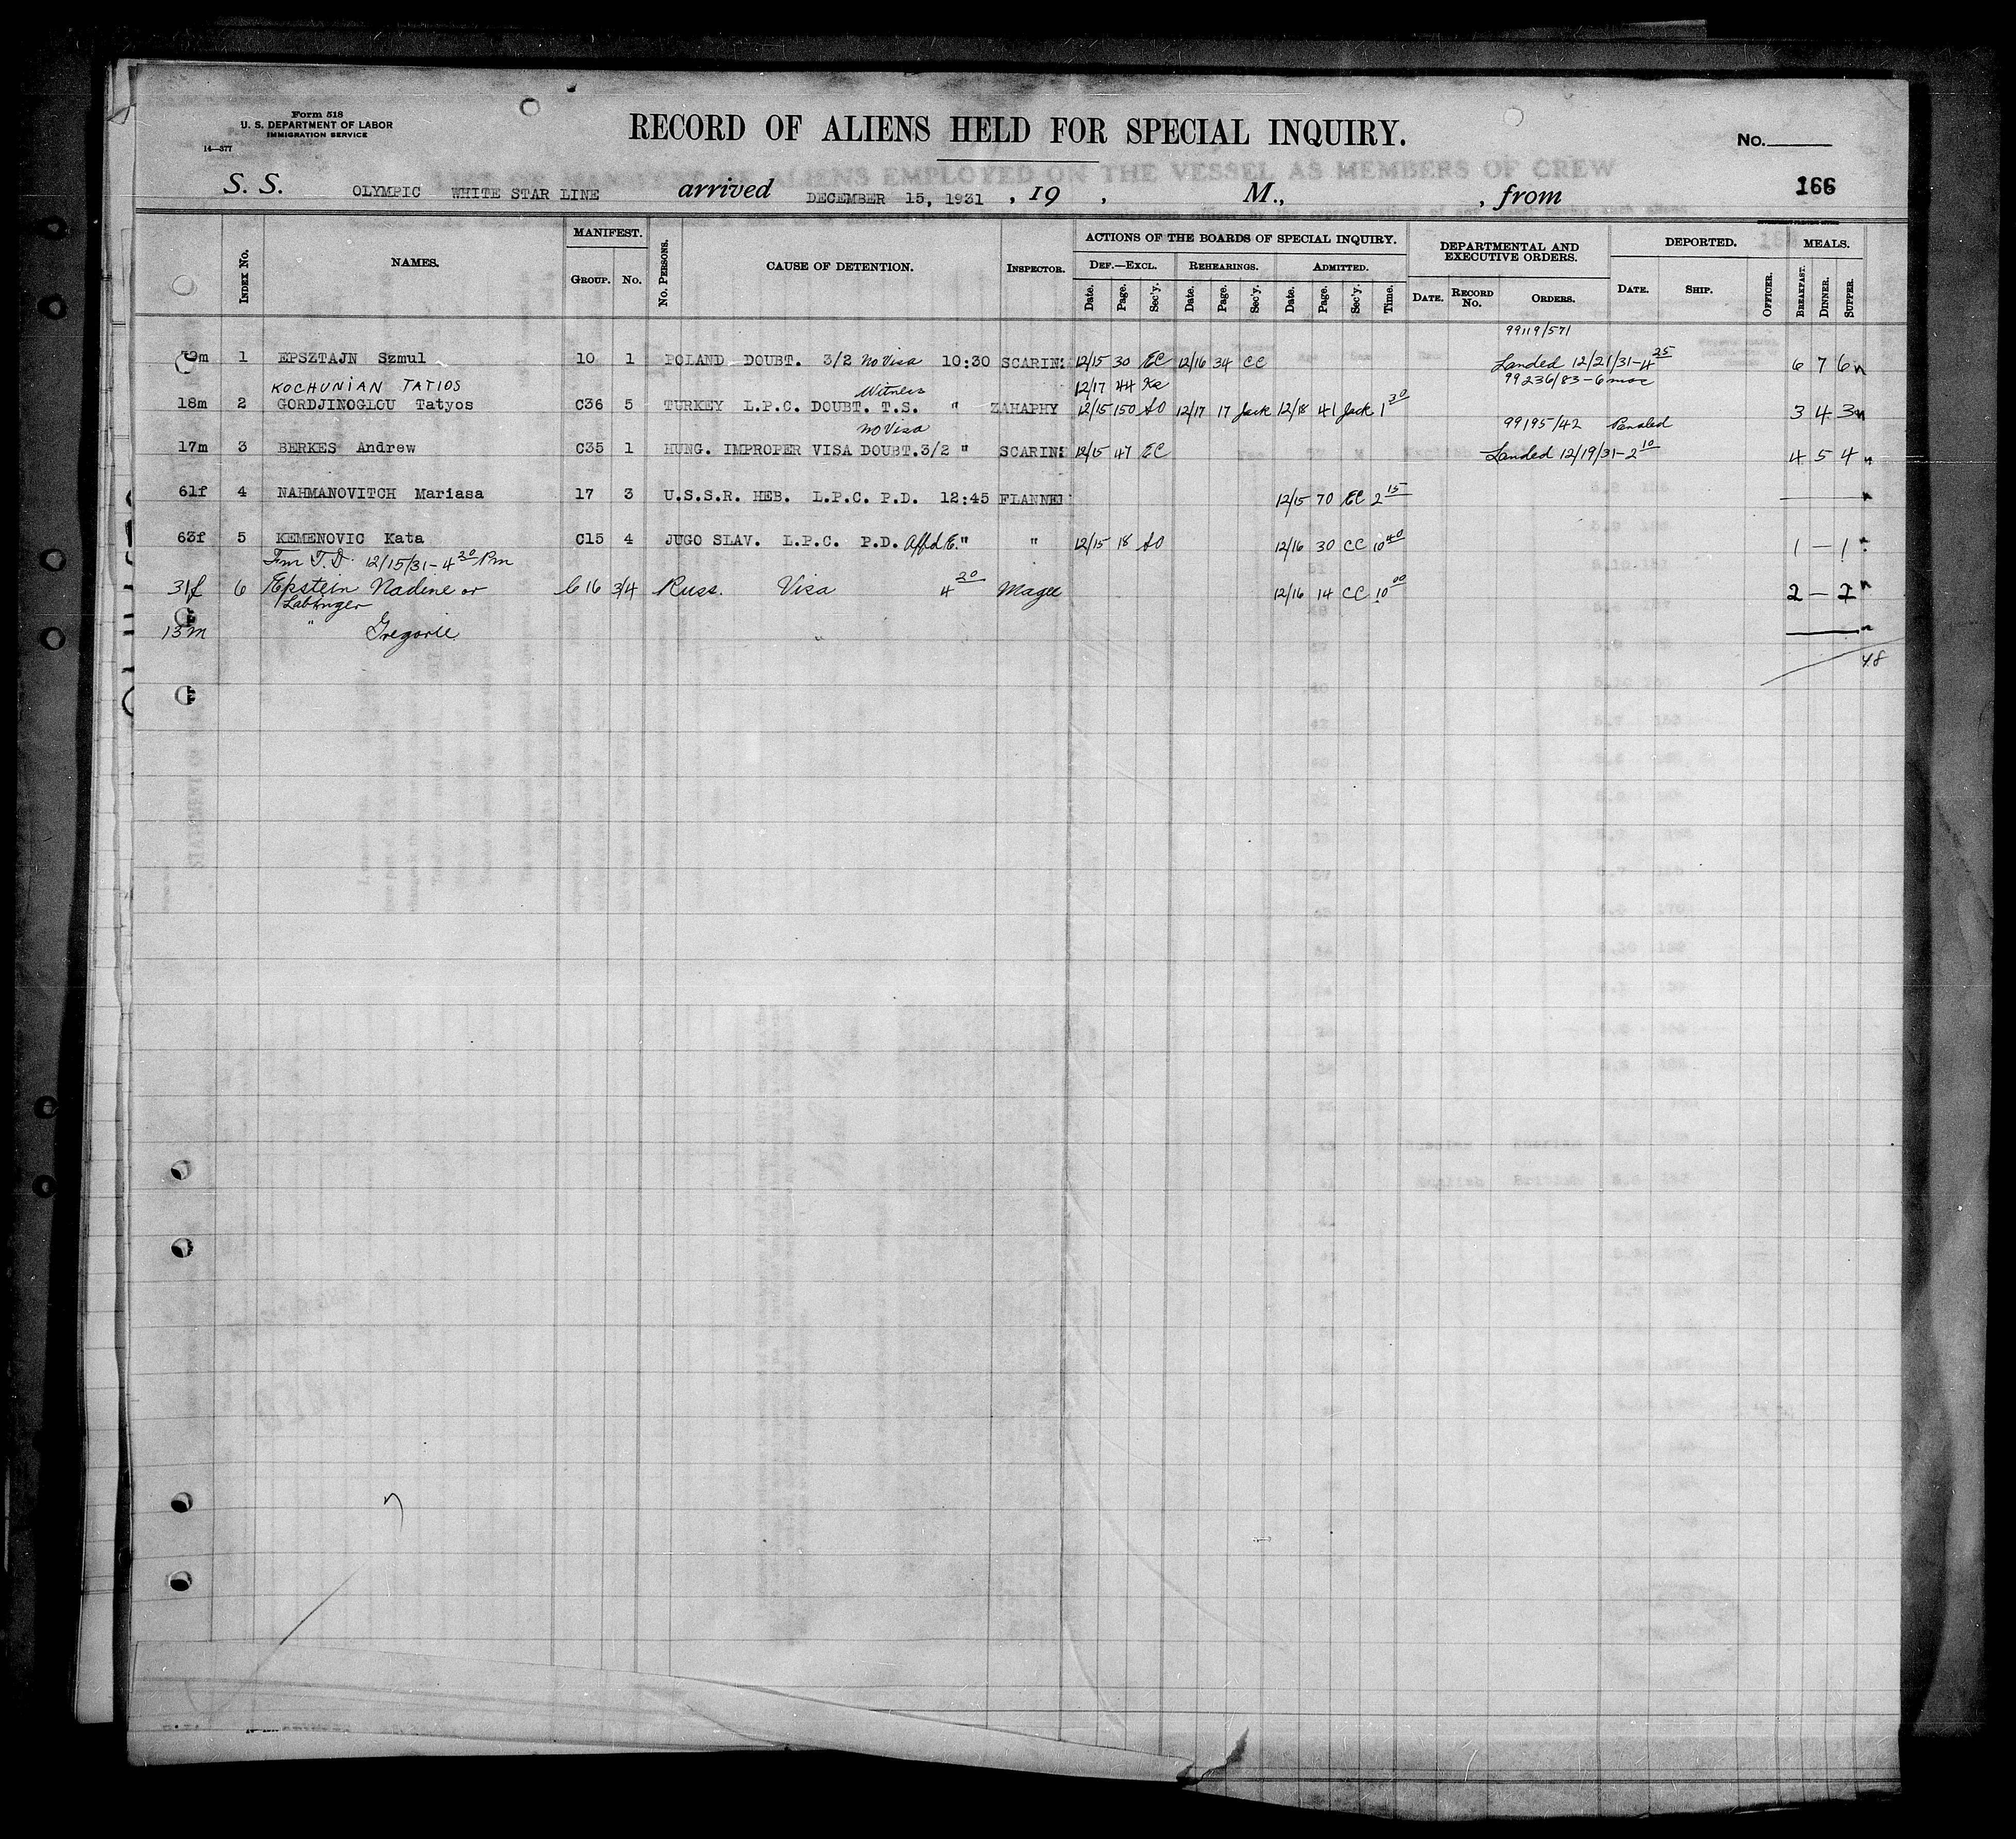 Form 518
U. S. DEPARTMENT OF LABOR
IMMIGRATION SERVICE
14—377
RECORD OF ALIENS HELD FOR SPECIAL INQUIRY.
No.
S. S. OLYMPIC WHITE STAR LINE arrived DECEMBER 15, 1931 , 19 , M., , from 166
Index No. NAMES. MANIFEST. Group. No. No. Persons. CAUSE OF DETENTION. Inspector. ACTIONS OF THE BOARDS OF SPECIAL INQUIRY. Def.—Excl. Date. Page. Sec'y. Rehearings. Date. Page. Sec'y. Admitted. Date. Page. Sec'y. Time. DEPARTMENTAL AND EXECUTIVE ORDERS. Date. Record No. Orders. DEPORTED. Date. Ship. Officer. MEALS. Breakfast. Dinner. Supper.
99119/571
m 1 EPSZTAJN Szmul 10 1 POLAND DOUBT. 3/2 No Visa 10:30 SCARIN 12/15 30 EC 12/16 34 CC Landed 12/21/31-4 25 6 7 6
KOCHUNIAN TATIOS Witness 12/17 44 99236/83-6 mos
18m 2 GORDJINOGLOU Tatyos C36 5 TURKEY L.P.C. DOUBT. T.S. " ZAHAPHY 12/15 150 SO 12/17 17 Jack 12/18 41 Jack 1 30 3 4 3
No Visa 99195/42
17m 3 BERKES Andrew C35 1 HUNG. IMPROPER VISA DOUBT.3/2 " SCARIN 12/15 47 EC Landed 12/19/31-2 10 4 5 4
61f 4 NAHMANOVITCH Mariasa 17 3 U.S.S.R. HEB. L.P.C. P.D. 12:45 FLANNE 12/15 70 EC 2 15
63f 5 KEMENOVIC Kata C15 4 JUGO SLAV. L.P.C. P.D. Affd E. " " 12/15 18 SO 12/16 30 CC 10 40 1 — 1
Fm T.D. 12/15/31-4 30 Pm
31f 6 Epstein Nadine or C16 3/4 Russ. Visa 4 20 Magee 12/16 14 CC 10 00 2 — 2
Labinger
13m " Gregorie "
48